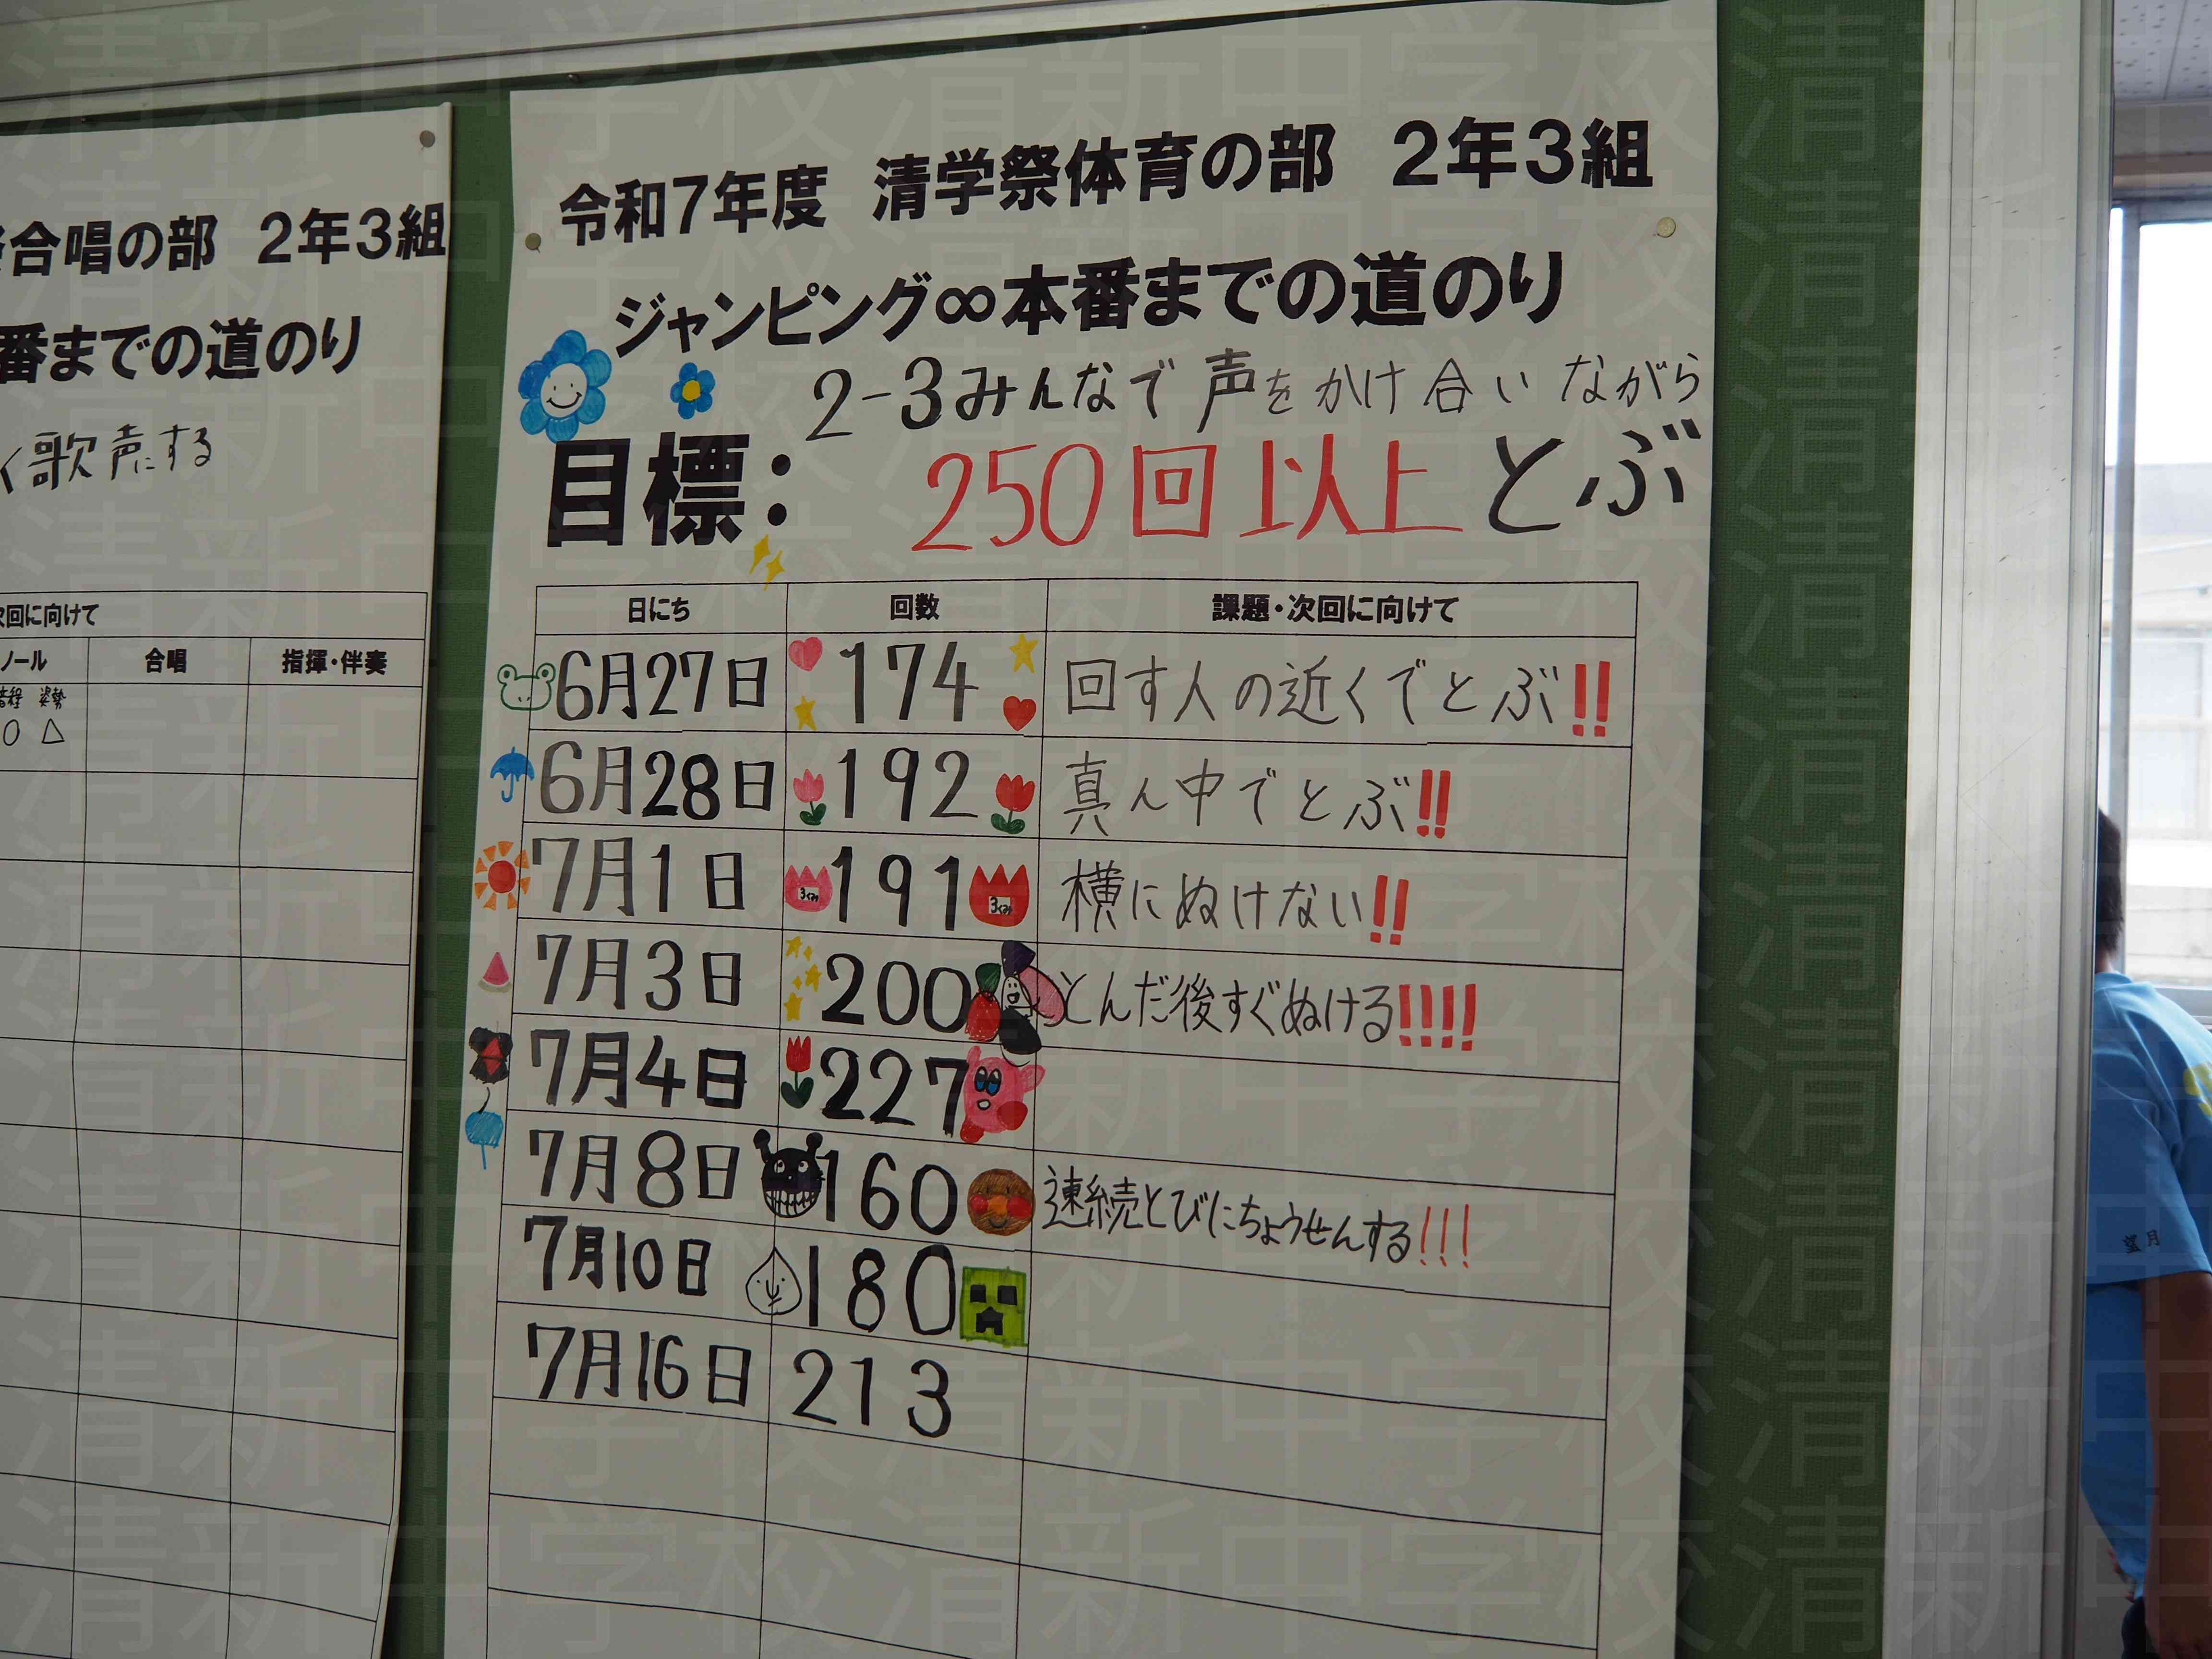 合唱の部 2年3組
番までの道のり
く歌声にする
次回に向けて
ノール 合唱 指揮・伴奏
音程 姿勢
○ △
令和7年度 清学祭体育の部 2年3組
ジャンピング∞本番までの道のり
2-3みんなで声をかけ合いながら
目標: 250回以上とぶ
日にち 回数 課題・次回に向けて
6月27日 174 回す人の近くでとぶ!!
6月28日 192 真ん中でとぶ!!
7月1日 3くみ 191 3くみ 横にぬけない!!
7月3日 200 とんだ後すぐぬける!!!!
7月4日 227
7月8日 160 速続とびにちょうせんする!!!
7月10日 180
7月16日 213
望月
清新中学校